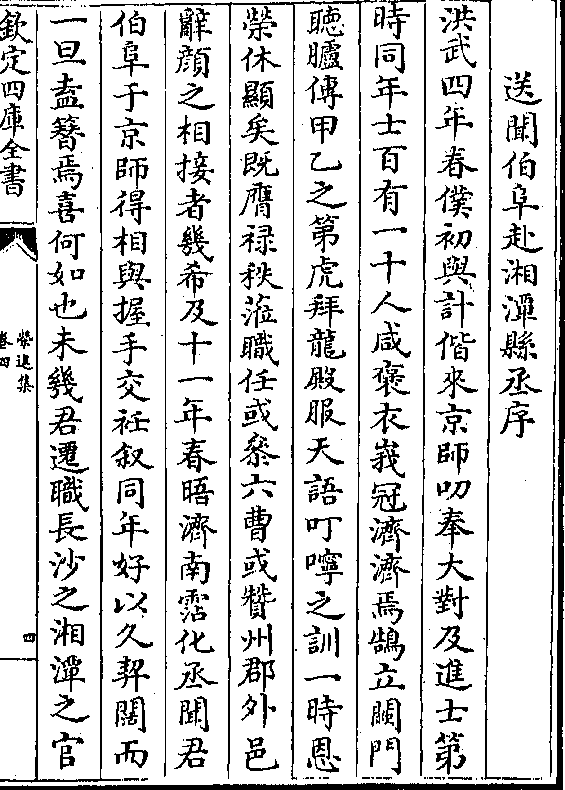 送聞伯阜赴湘潭縣丞序
洪武四年春僕初與計偕來京師叨奉大對及進士第
時同年士百有一十人咸褒衣峩冠濟濟焉鵠立闕門
聽臚傳甲乙之第虎拜龍殿服天語叮嚀之訓一時恩
榮休顯矣既膺禄秩蒞職任或叅六曹或贊州郡外邑
辭顔之相接者幾希及十一年春晤濟南霑化丞聞君
伯阜于京師得相與握手交衽叙同年好以久契闊而
一旦盍簪焉喜何如也未幾君遷職長沙之湘潭之官
欽定四庫全書
榮進集
卷四
四